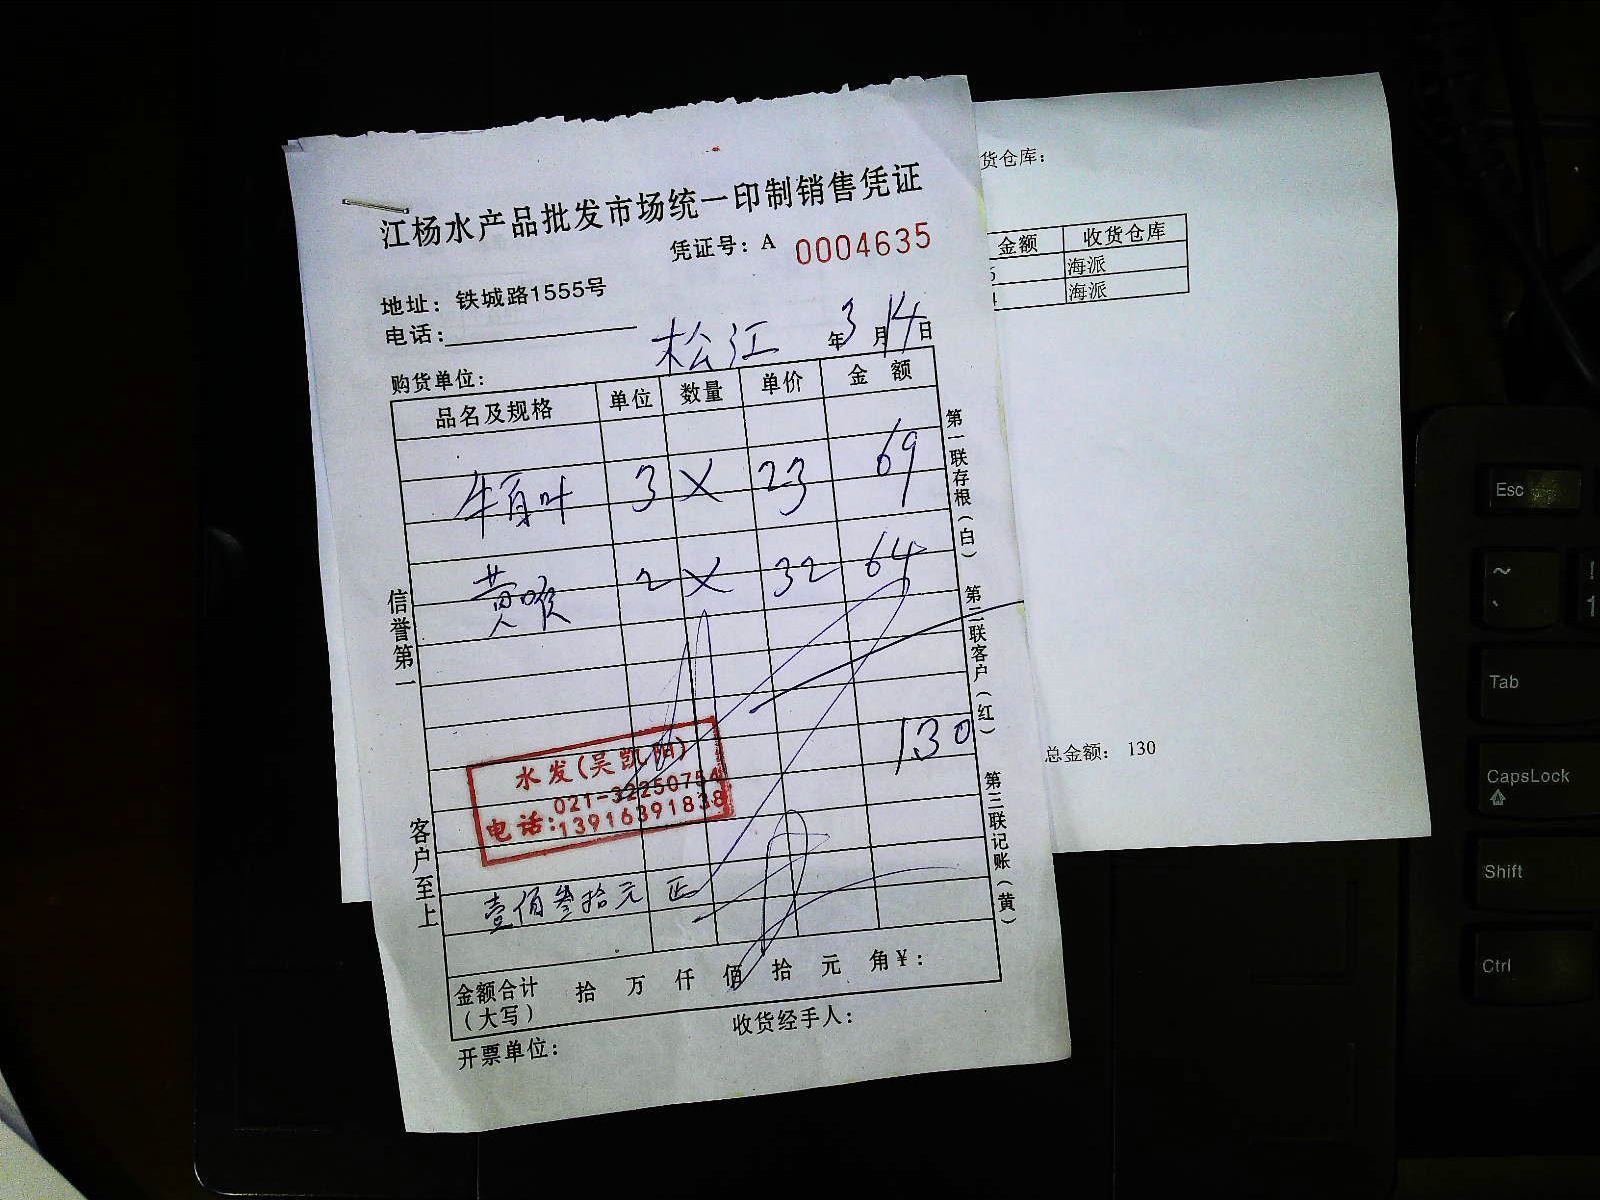 江杨水产品批发市场统一印制销售凭证
凭证号：A 0004635
地址：铁城路1555号
电话：
松江 年3月14日
购货单位：
品名及规格 单位 数量 单价 金 额
牛百叶 3 X 23 69
黄喉 2 X 32 64
130
水发(吴凯阳)
021-32250754
电话:13916391838
壹佰叁拾元 正
金额合计（大写） 拾 万 仟 佰 拾 元 角￥：
收货经手人：
开票单位：
信誉第一
客户至上
第一联存根（白）
第二联客户（红）
第三联记账（黄）
货仓库：
金额 收货仓库
海派
海派
总金额： 130
Esc
~
Tab
CapsLock
Shift
Ctrl